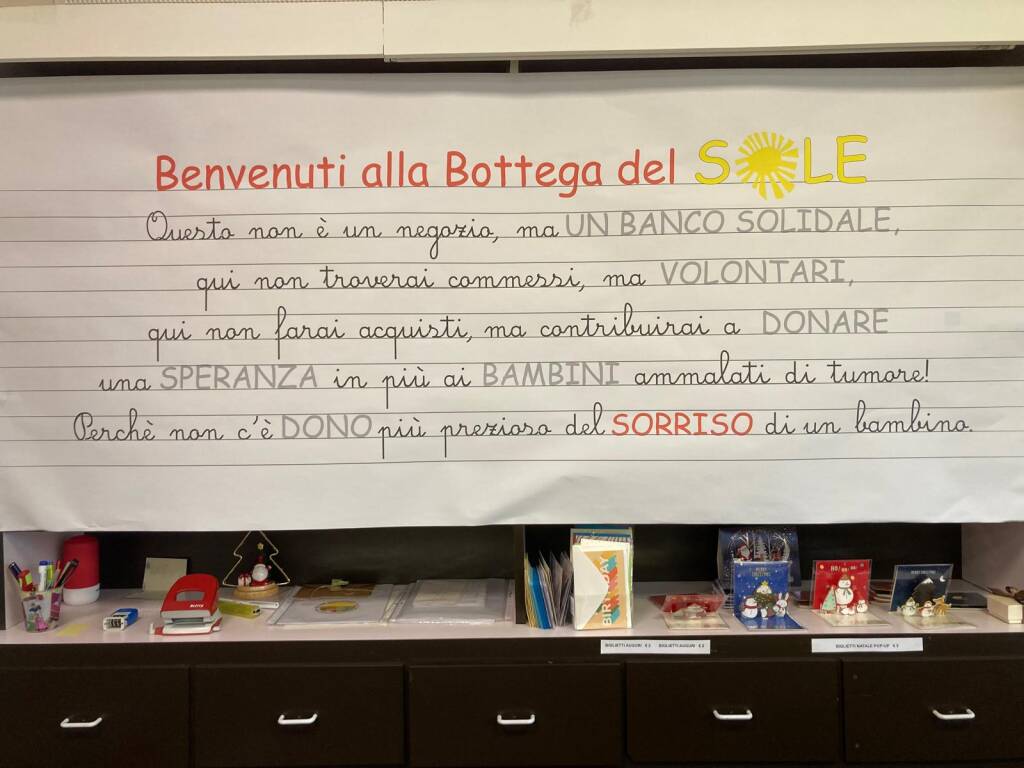 Benvenuti alla Bottega del SOLE
Questo non è un negozio, ma UN BANCO SOLIDALE,
qui non troverai commessi, ma VOLONTARI,
qui non farai acquisti, ma contribuirai a DONARE
una SPERANZA in più ai BAMBINI ammalati di tumore!
Perchè non c'è DONO più prezioso del SORRISO di un bambino.
BIRTHDAY
BIGLIETTI AUGURI € 3 BIGLIETTI AUGURI € 3
BIGLIETTI NATALE POP-UP € 5